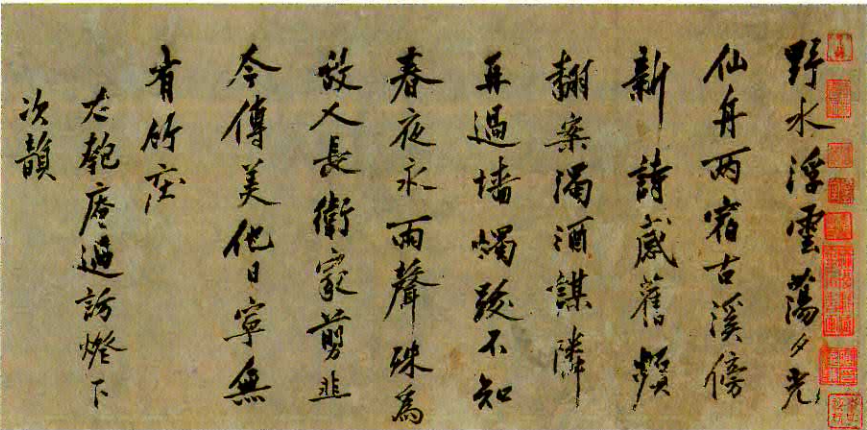 野水浮雲蕩夕光
仙舟两宿古溪傍
新詩感舊頻
翻案濁酒謀隣
再過墻燭跋不知
春夜永雨聲殊為
故人長衛家剪韭
今傳美他日寧無
有竹庄
右匏庵過訪燈下
次韻